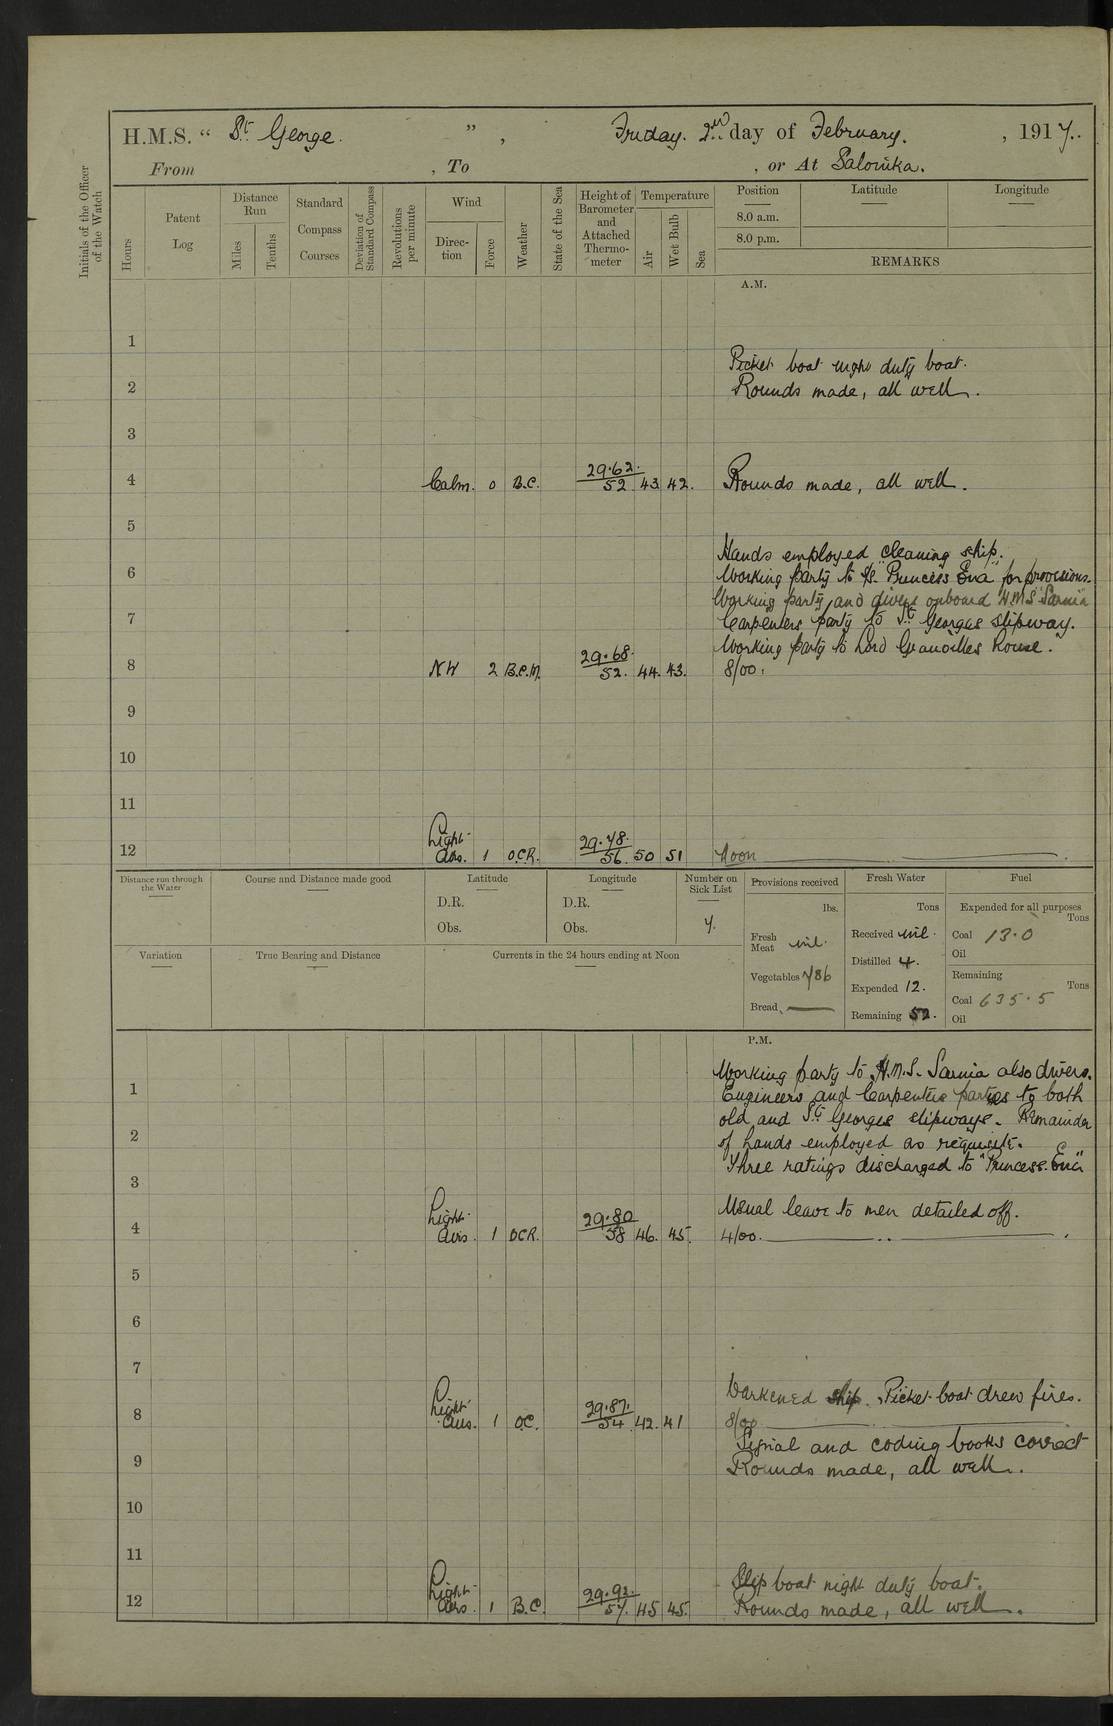 H.M.S. “ St George. ” , Friday. 2nd day of February. , 1917.
From , To , or At Salonika.
Initials of the Officer of the Watch
Hours
Patent Log
Distance Run
Miles
Tenths
Standard Compass Courses
Deviation of Standard Compass
Revolutions per minute
Wind
Direction
Force
Weather
State of the Sea
Height of Barometer and Attached Thermo-meter
Temperature
Air
Wet Bulb
Sea
Position
8.0 a.m.
8.0 p.m.
Latitude
Longitude
REMARKS
A.M.
1
Picket boat night duty boat.
2 Rounds made, all well.
3
29.62.
4 Calm. 0 B.C. 52 43 42. Rounds made, all well.
5
Hands employed cleaning ship.
6 Working party to SS. "Princess Ena" for provisions.
Working party and divers onboard H.M.S "Sarnia"
7 Carpenters party to St Georges slipway.
Working party to Lord Granvilles House.
29.68.
8 NW 2 B.C.M. 52. 44. 43. 8/00.
9
10
11
Light 29.78.
12 Airs. 1 O.C.R. 56. 50 51 Noon
Distance run through the Water
Course and Distance made good
Latitude
D.R.
Obs.
Longitude
D.R.
Obs.
Number on Sick List
7.
Provisions received
lbs.
Fresh Meat nil.
Vegetables 786
Bread
Fresh Water
Tons
Received nil.
Distilled 4.
Expended 12.
Remaining 52.
Fuel
Expended for all purposes
Tons
Coal 13.0
Oil
Remaining
Tons
Coal 635.5
Oil
Variation
True Bearing and Distance
Currents in the 24 hours ending at Noon
P.M.
Working party to H.M.S. Sarnia also divers.
1 Engineers and Carpenters parties to both
old and St Georges slipways. Remainder
2 of hands employed as requisite.
Three ratings discharged to "Princess. Ena"
3
Light 29.80 Usual leave to men detailed off.
4 Airs. 1 OCR. 58 46. 45. 4/00.
5
6
7
Light 29.87. Darkened ship. Picket boat drew fires.
8 Airs. 1 O.C. 54 42. 41 8/00
Signal and coding books correct
9 Rounds made, all well.
10
11
Light 29.92. Slip boat night duty boat.
12 Airs. 1 B.C. 57. 45 45. Rounds made, all well.